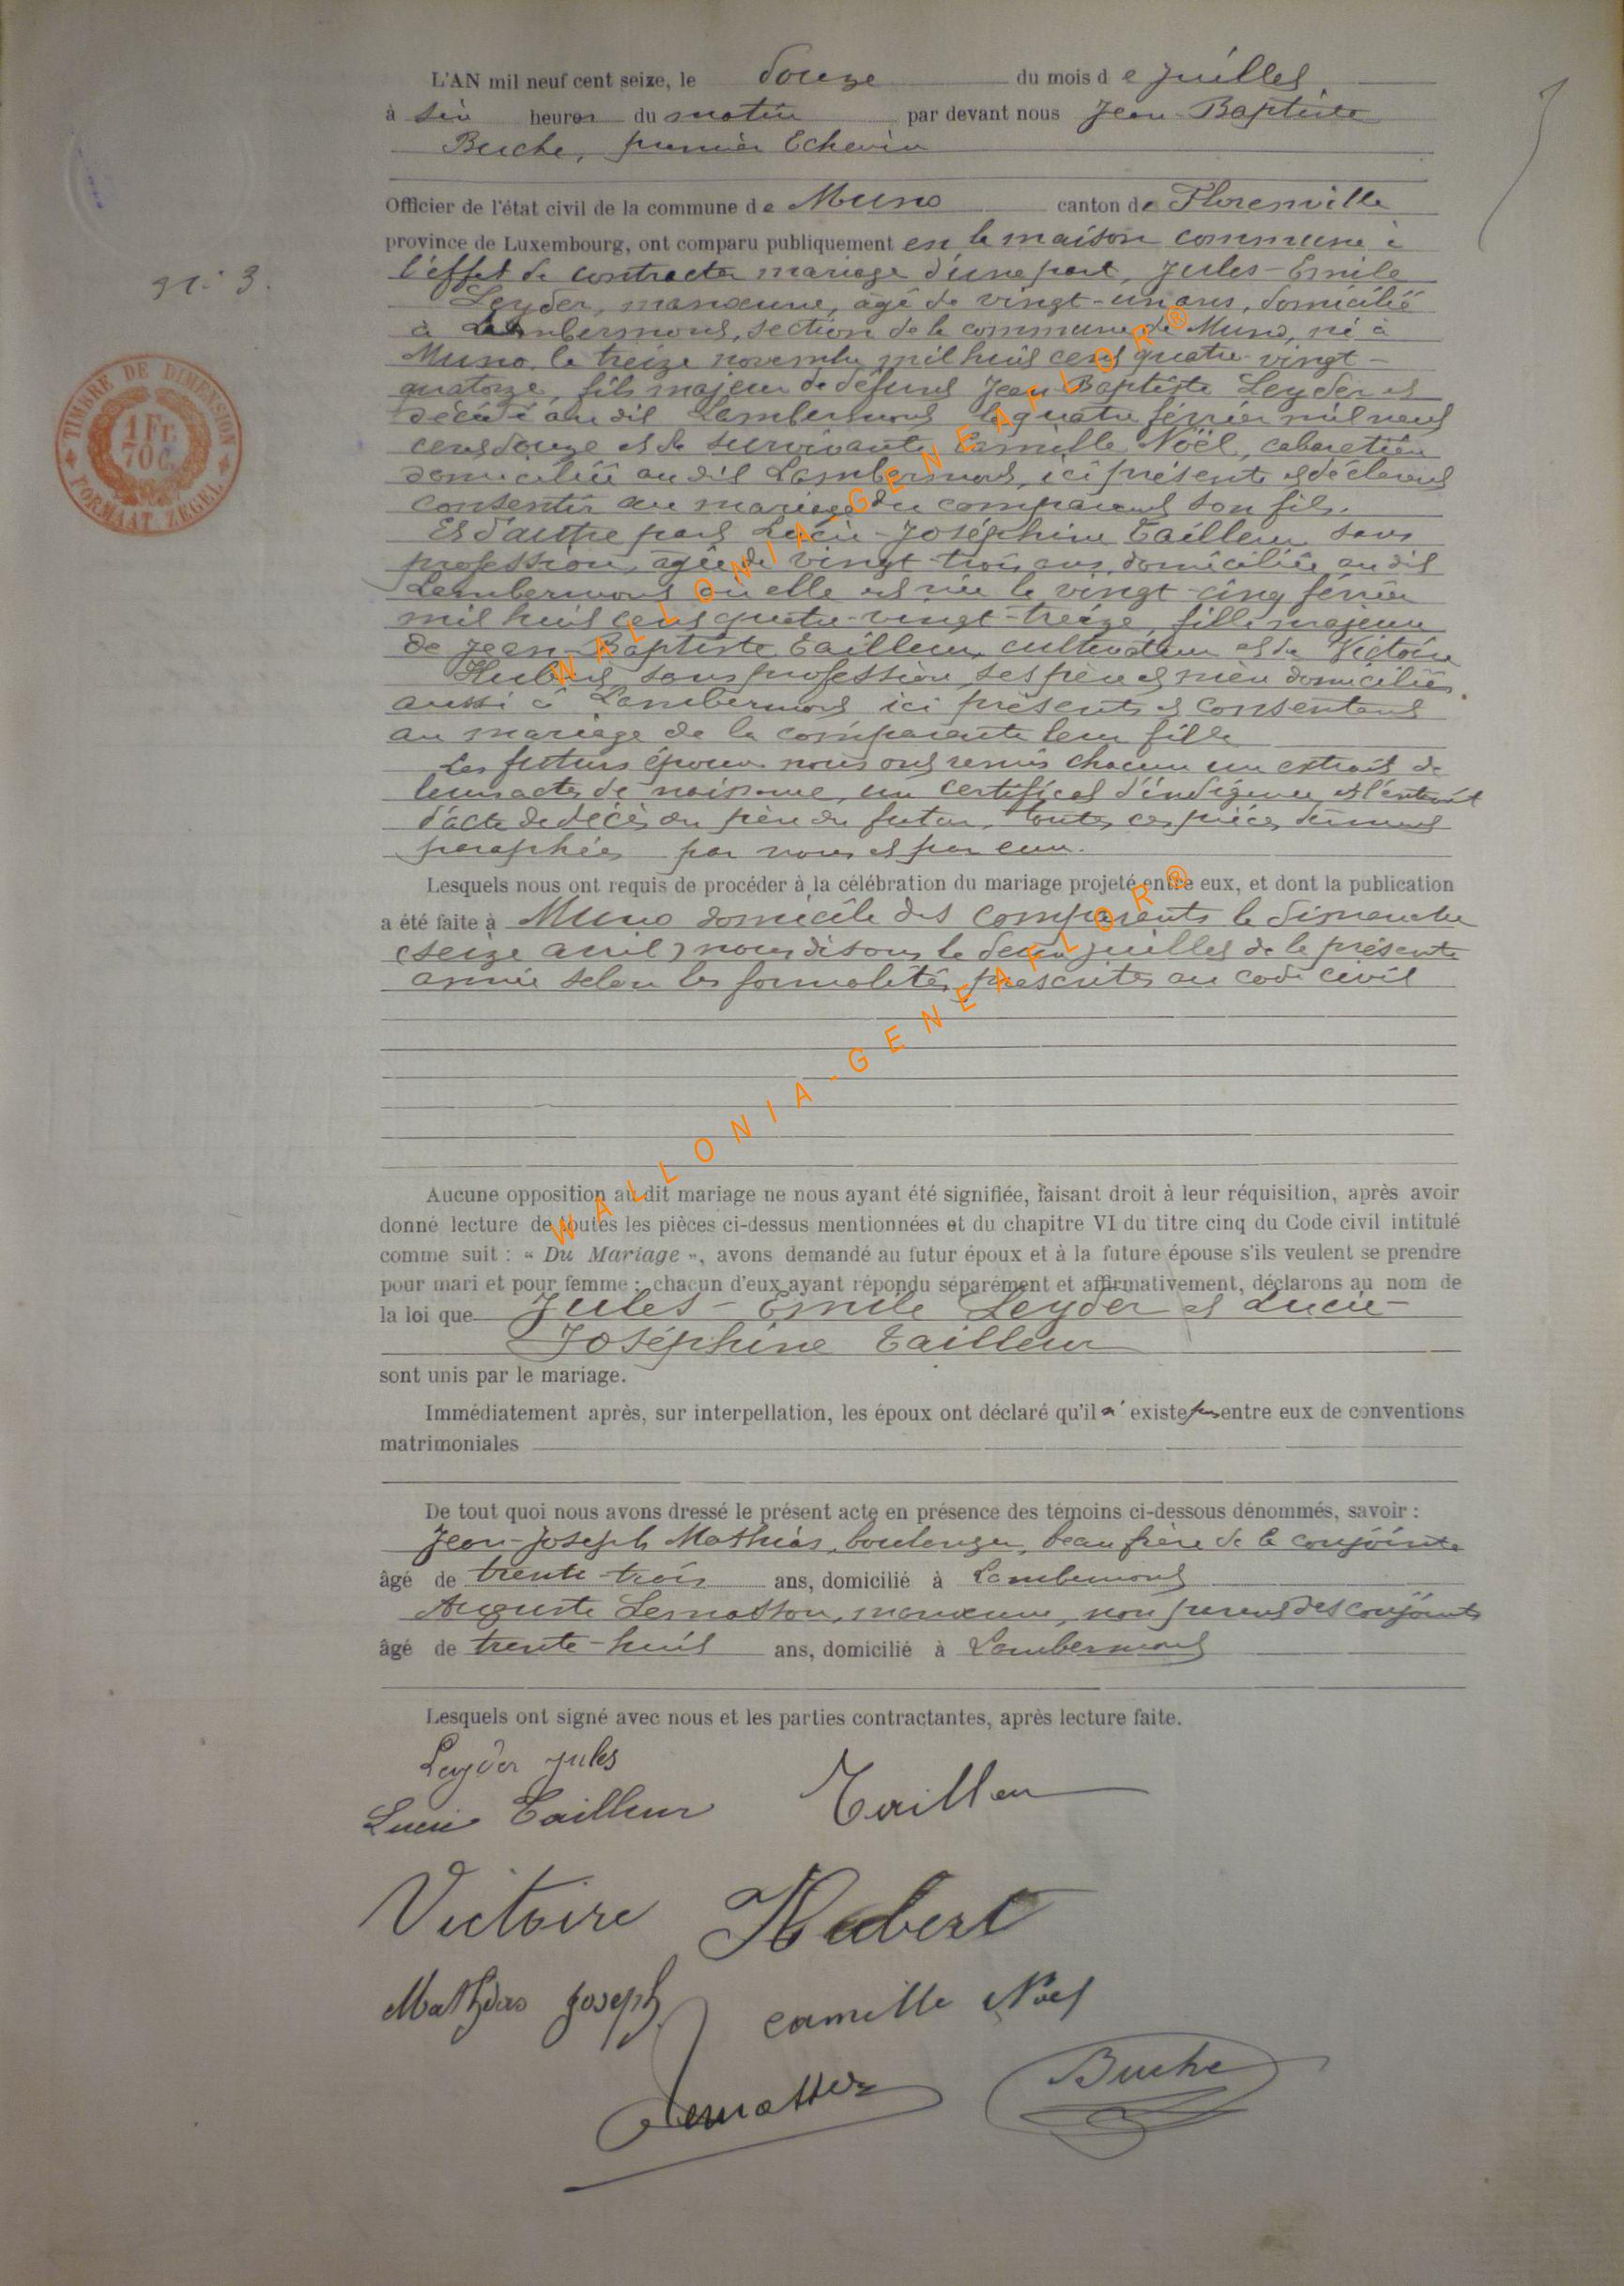 L'AN mil neuf cent seize, le douze du mois de Juillet
à six heures du matin par devant nous Jean-Baptiste
Buche, premier Echevin
Officier de l'état civil de la commune de Muno canton de Florenville
province de Luxembourg, ont comparu publiquement en la maison commune à
l'effet de contracter mariage d'une part, Jules-Emile
Leyder, manœuvre, âgé de vingt-un ans, domicilié
à Lambermont, section de la commune de Muno, né à
Muno le treize novembre mil huit cent quatre-vingt-
quatorze, fils majeur de défunt Jean-Baptiste Leyder
décédé au dit Lambermont le quatre février mil neuf
cent douze et de survivante Camille Noël, cabaretière
domiciliée au dit Lambermont, ici présente et déclarant
consentir au mariage du comparant son fils.
Et d'autre part Lucie-Joséphine Tailleur sans
profession, âgée de vingt-trois ans, domiciliée au dit
Lambermont où elle est née le vingt-cinq février
mil huit cent quatre-vingt-treize, fille majeure
de Jean-Baptiste Tailleur, cultivateur et de Victoire
Hubert, sans profession, ses père et mère domiciliés
aussi à Lambermont ici présents et consentant
au mariage de la comparante leur fille
Les futurs époux nous ont remis chacun un extrait de
leurs actes de naissance, un certificat d'indigence et l'extrait
d'acte de décès du père du futur, toutes ces pièces dûment
paraphées par nous et par eux.
Lesquels nous ont requis de procéder à la célébration du mariage projeté entre eux, et dont la publication
a été faite à Muno domicile des comparents le dimanche
(seize avril) nous disons le deux juillet de la présente
année selon les formalités prescrites au code civil
Aucune opposition au dit mariage ne nous ayant été signifiée, faisant droit à leur réquisition, après avoir
donné lecture de toutes les pièces ci-dessus mentionnées et du chapitre VI du titre cinq du Code civil intitulé
comme suit : « Du Mariage », avons demandé au futur époux et à la future épouse s'ils veulent se prendre
pour mari et pour femme ; chacun d'eux ayant répondu séparément et affirmativement, déclarons au nom de
la loi que Jules-Emile Leyder et Lucie-
Joséphine Tailleur
sont unis par le mariage.
Immédiatement après, sur interpellation, les époux ont déclaré qu'il n'existe pas entre eux de conventions
matrimoniales
De tout quoi nous avons dressé le présent acte en présence des témoins ci-dessous dénommés, savoir :
Jean-Joseph Mathias, boulanger, beau frère de la conjointe
âgé de trente-trois ans, domicilié à Lambermont
Auguste Lemasson, manœuvre, non parent des conjoints
âgé de trente-huit ans, domicilié à Lambermont
Lesquels ont signé avec nous et les parties contractantes, après lecture faite.
Leyder Jules
Lucie Tailleur Tailleur
Victoire Hubert
Mathias Joseph Camille Noël
Lemasson Buche
n° 3.
TIMBRE DE DIMENSION
1 Fr.
70 C.
FORMAAT ZEGEL
WALLONIA-GENEAFLOR®
WALLONIA-GENEAFLOR®